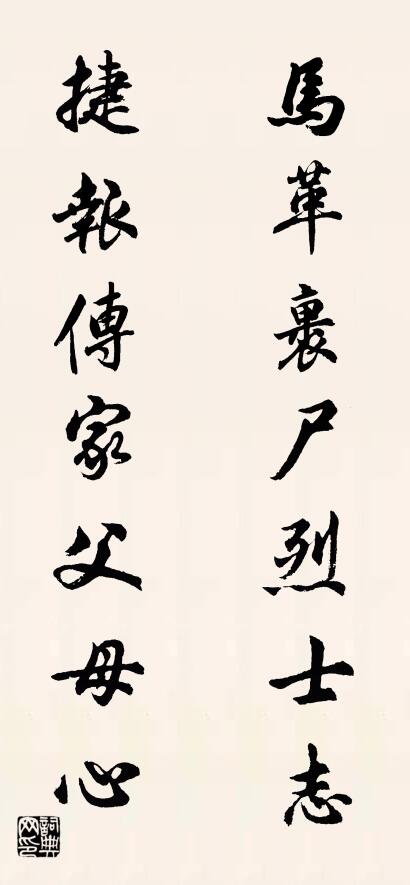 馬革裹尸烈士志
捷報傳家父母心
詞典网印